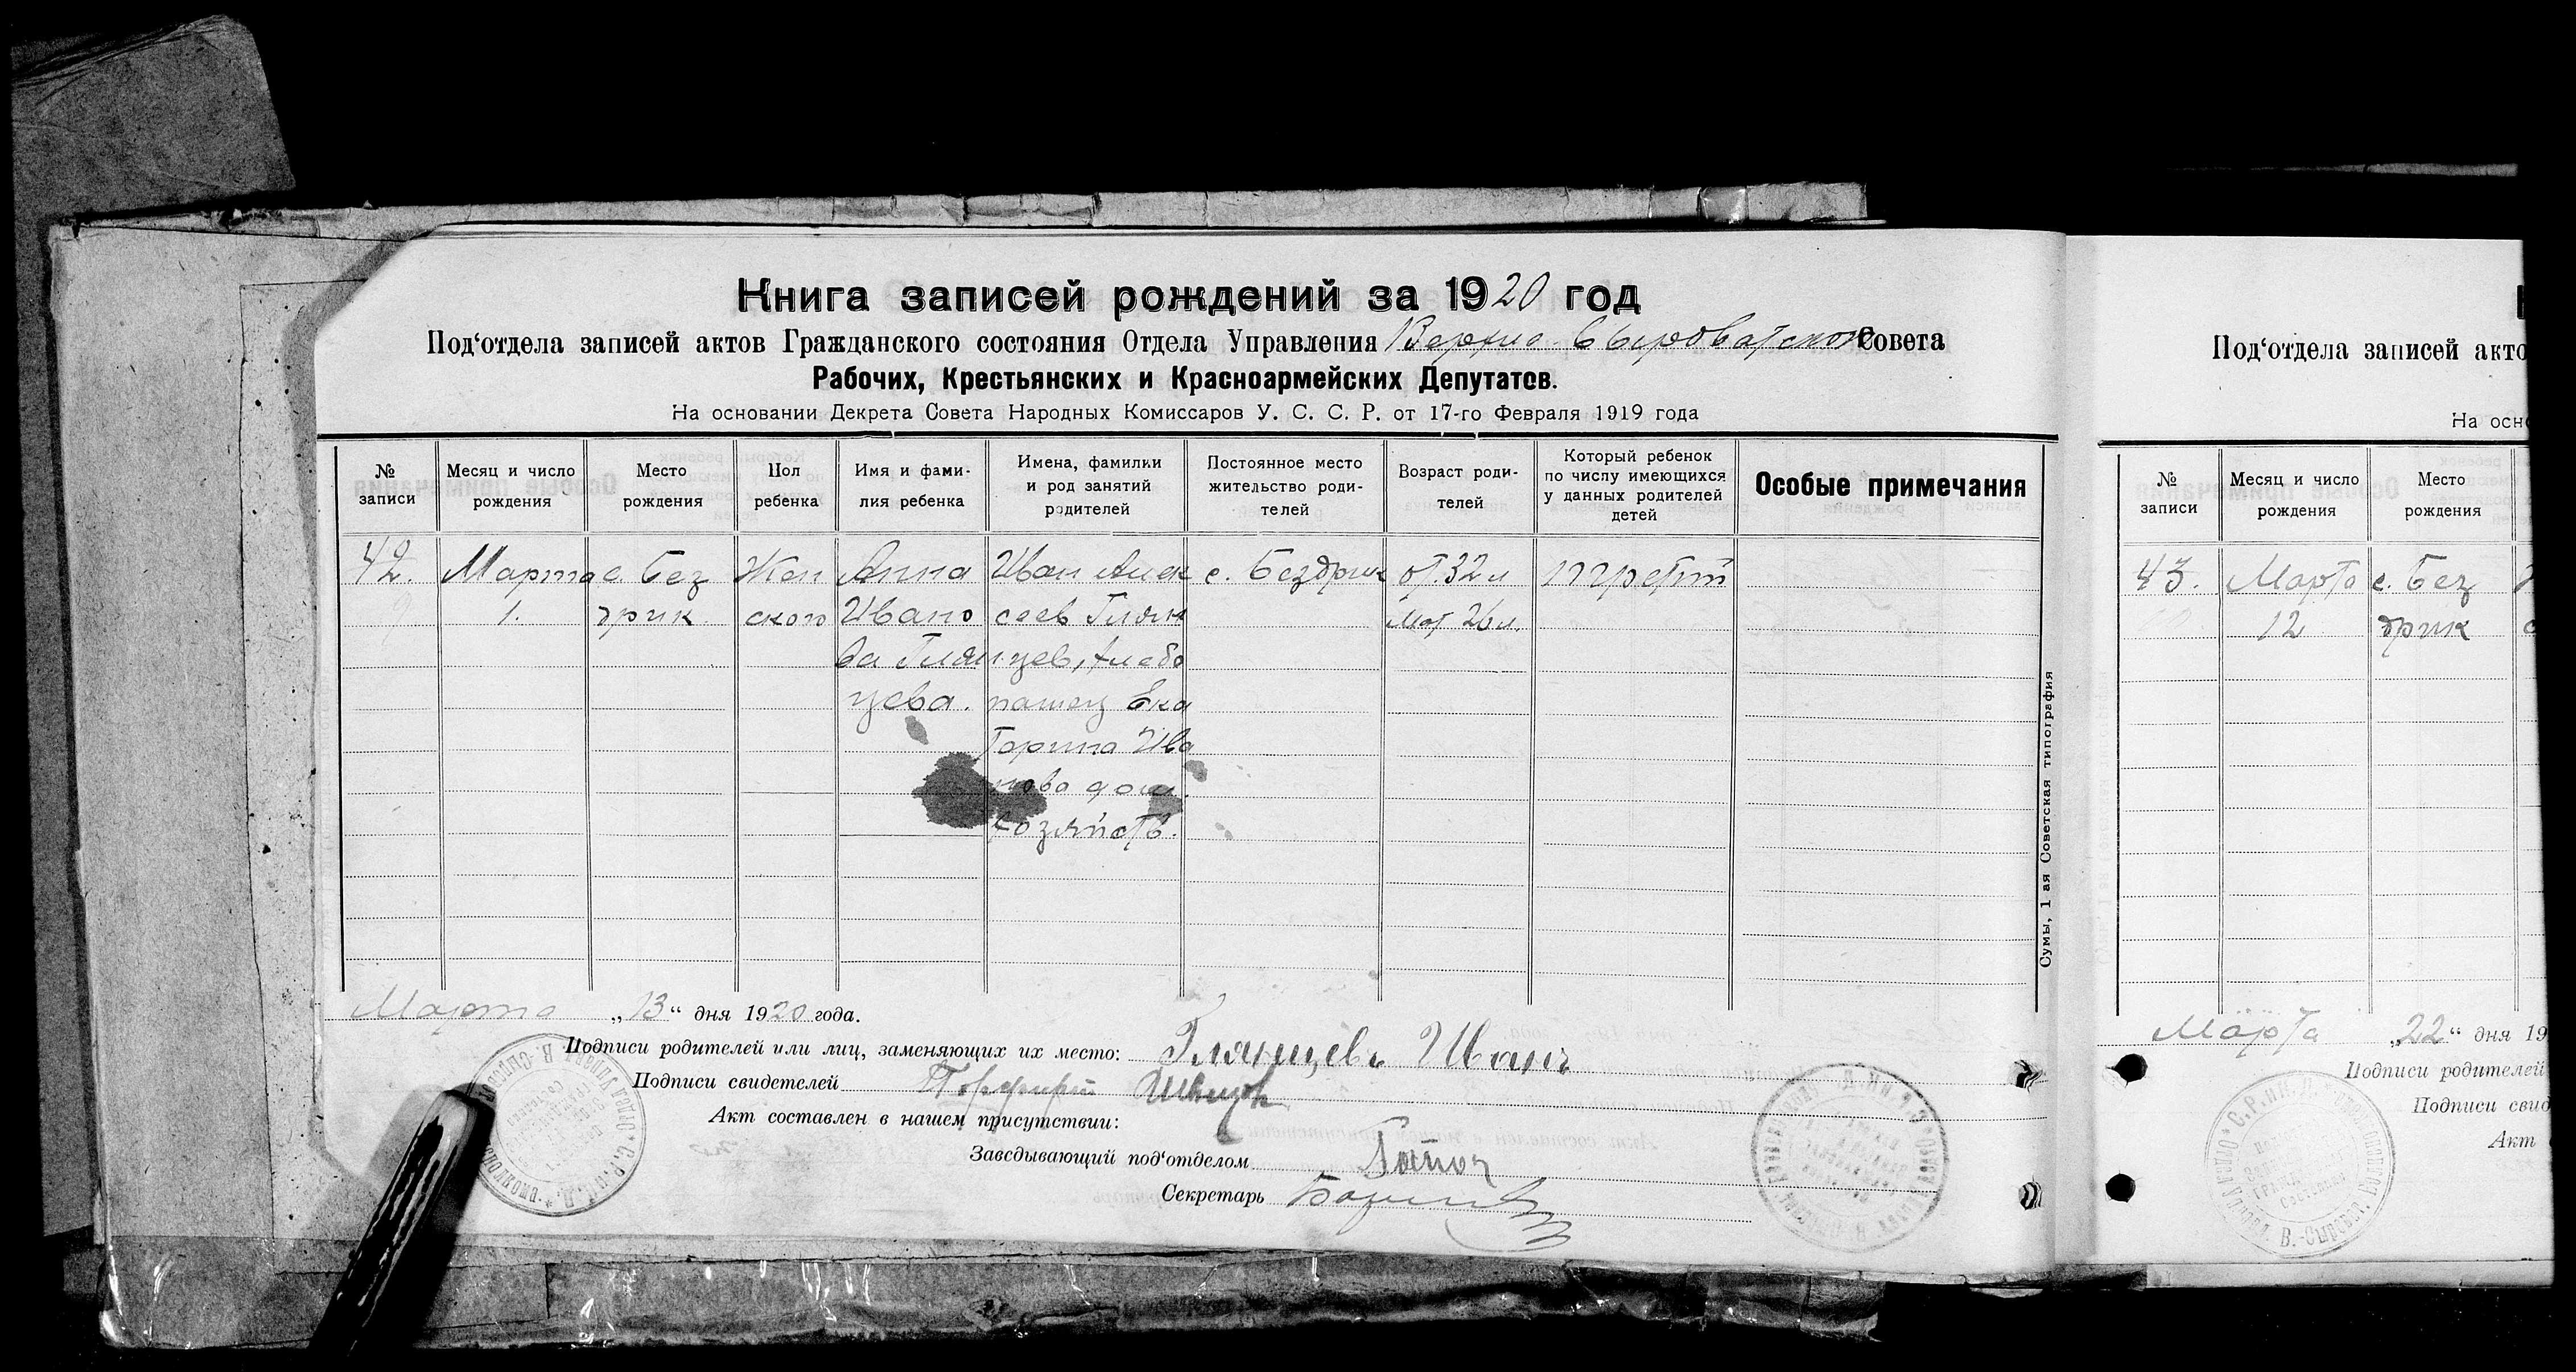 Книга записей рождений за 1920 год
Под‘отдела записей актов Гражданского состояния Отдела Управления Верхно-Сыроватском Совета
Рабочих, Крестьянских и Красноармейских Депутатов.
На основании Декрета Совета Народных Комиссаров У. С. С. Р. от 17-го Февраля 1919 года
№ записи
Месяц и число рождения
Место рождения
Пол ребенка
Имя и фами-
лия ребенка
Имена, фамилки
и род занятий
родителей
Постоянное место
жительство роди-
телей
Возраст роди-
телей
Который ребенок
по числу имеющихся
у данных родителей
детей
Особые примечания
42.
Марта
1.
с. Без
дрик
Жен
ского
Анна
Ивано
ва Глян
цева.
Иван Алек
сеев Глян
цев, хлебо
пашец Ека
терина Ива
нова дом.
хозяйств.
с. Бездрик
от. 32 л
мат 26 л.
третий
Марта „13“ дня 1920 года.
Подписи родителей или лиц, заменяющих их место: Глянцевъ Иванъ
Подписи свидетелей Порфирий Швецов
Акт составлен в нашем присутствии:
Заведывающий под‘отделом
Секретарь
Сумы, 1-ая Советская типография
Под‘отдела записей акто
На осно
№ записи
Месяц и число рождения
Место рождения
43.
Марта
12
с. Без
дрик
Марта „22“ дня 19
Подписи родителей
Подписи свид
Акт